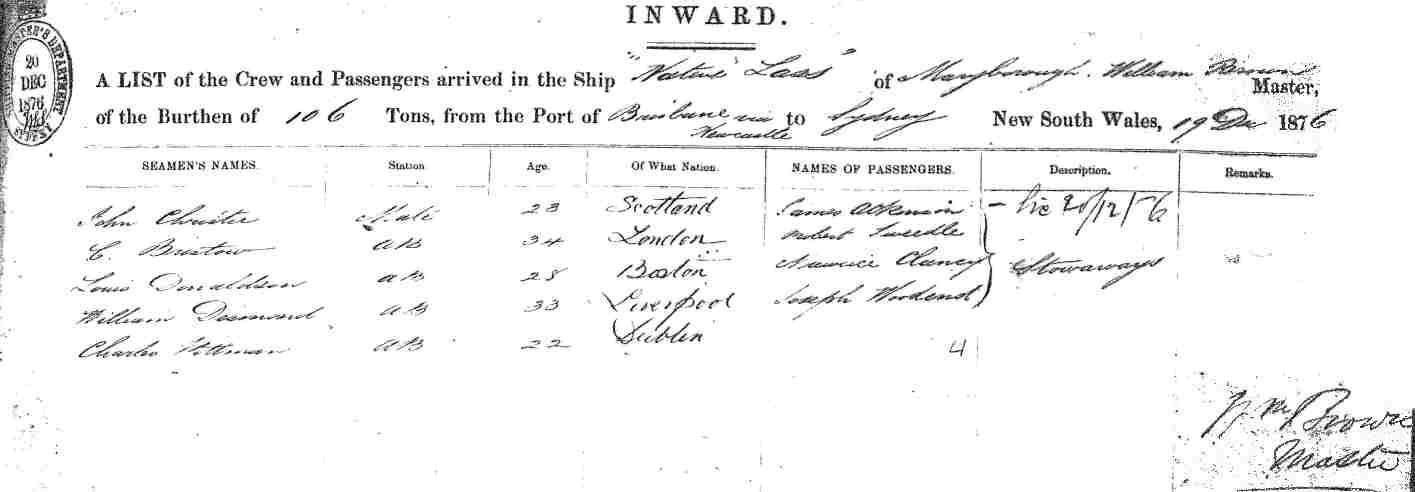 INWARD.
MASTER'S DEPARTMENT
20
DEC
1876
SYDNEY
A LIST of the Crew and Passengers arrived in the Ship "Native Lass" of Maryborough. William Brown Master,
of the Burthen of 106 Tons, from the Port of Brisbane via Newcastle to Sydney New South Wales, 19 De 1876
SEAMEN'S NAMES. Station. Age. Of What Nation. NAMES OF PASSENGERS. Description. Remarks.
John Christie Mate 23 Scotland James 20/12/76
C. Bristow AB 34 London Robert Tweedle
Louis Donaldson AB 28 Boston Maurice Clancy Stowaways
William Desmond AB 33 Liverpool Joseph Woodend
Charles AB 22 Dublin
4
Wm Browne
Master